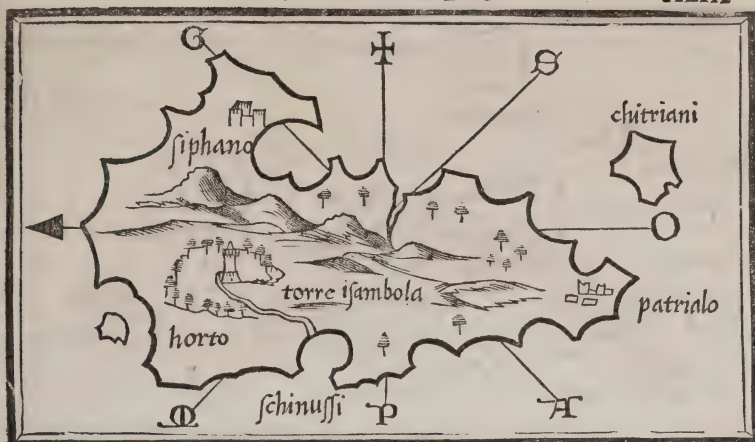 G
✠
S
chitriani
ſiphano
O
torre iſambola
patrialo
horto
ſchinuſſi
M
P
A